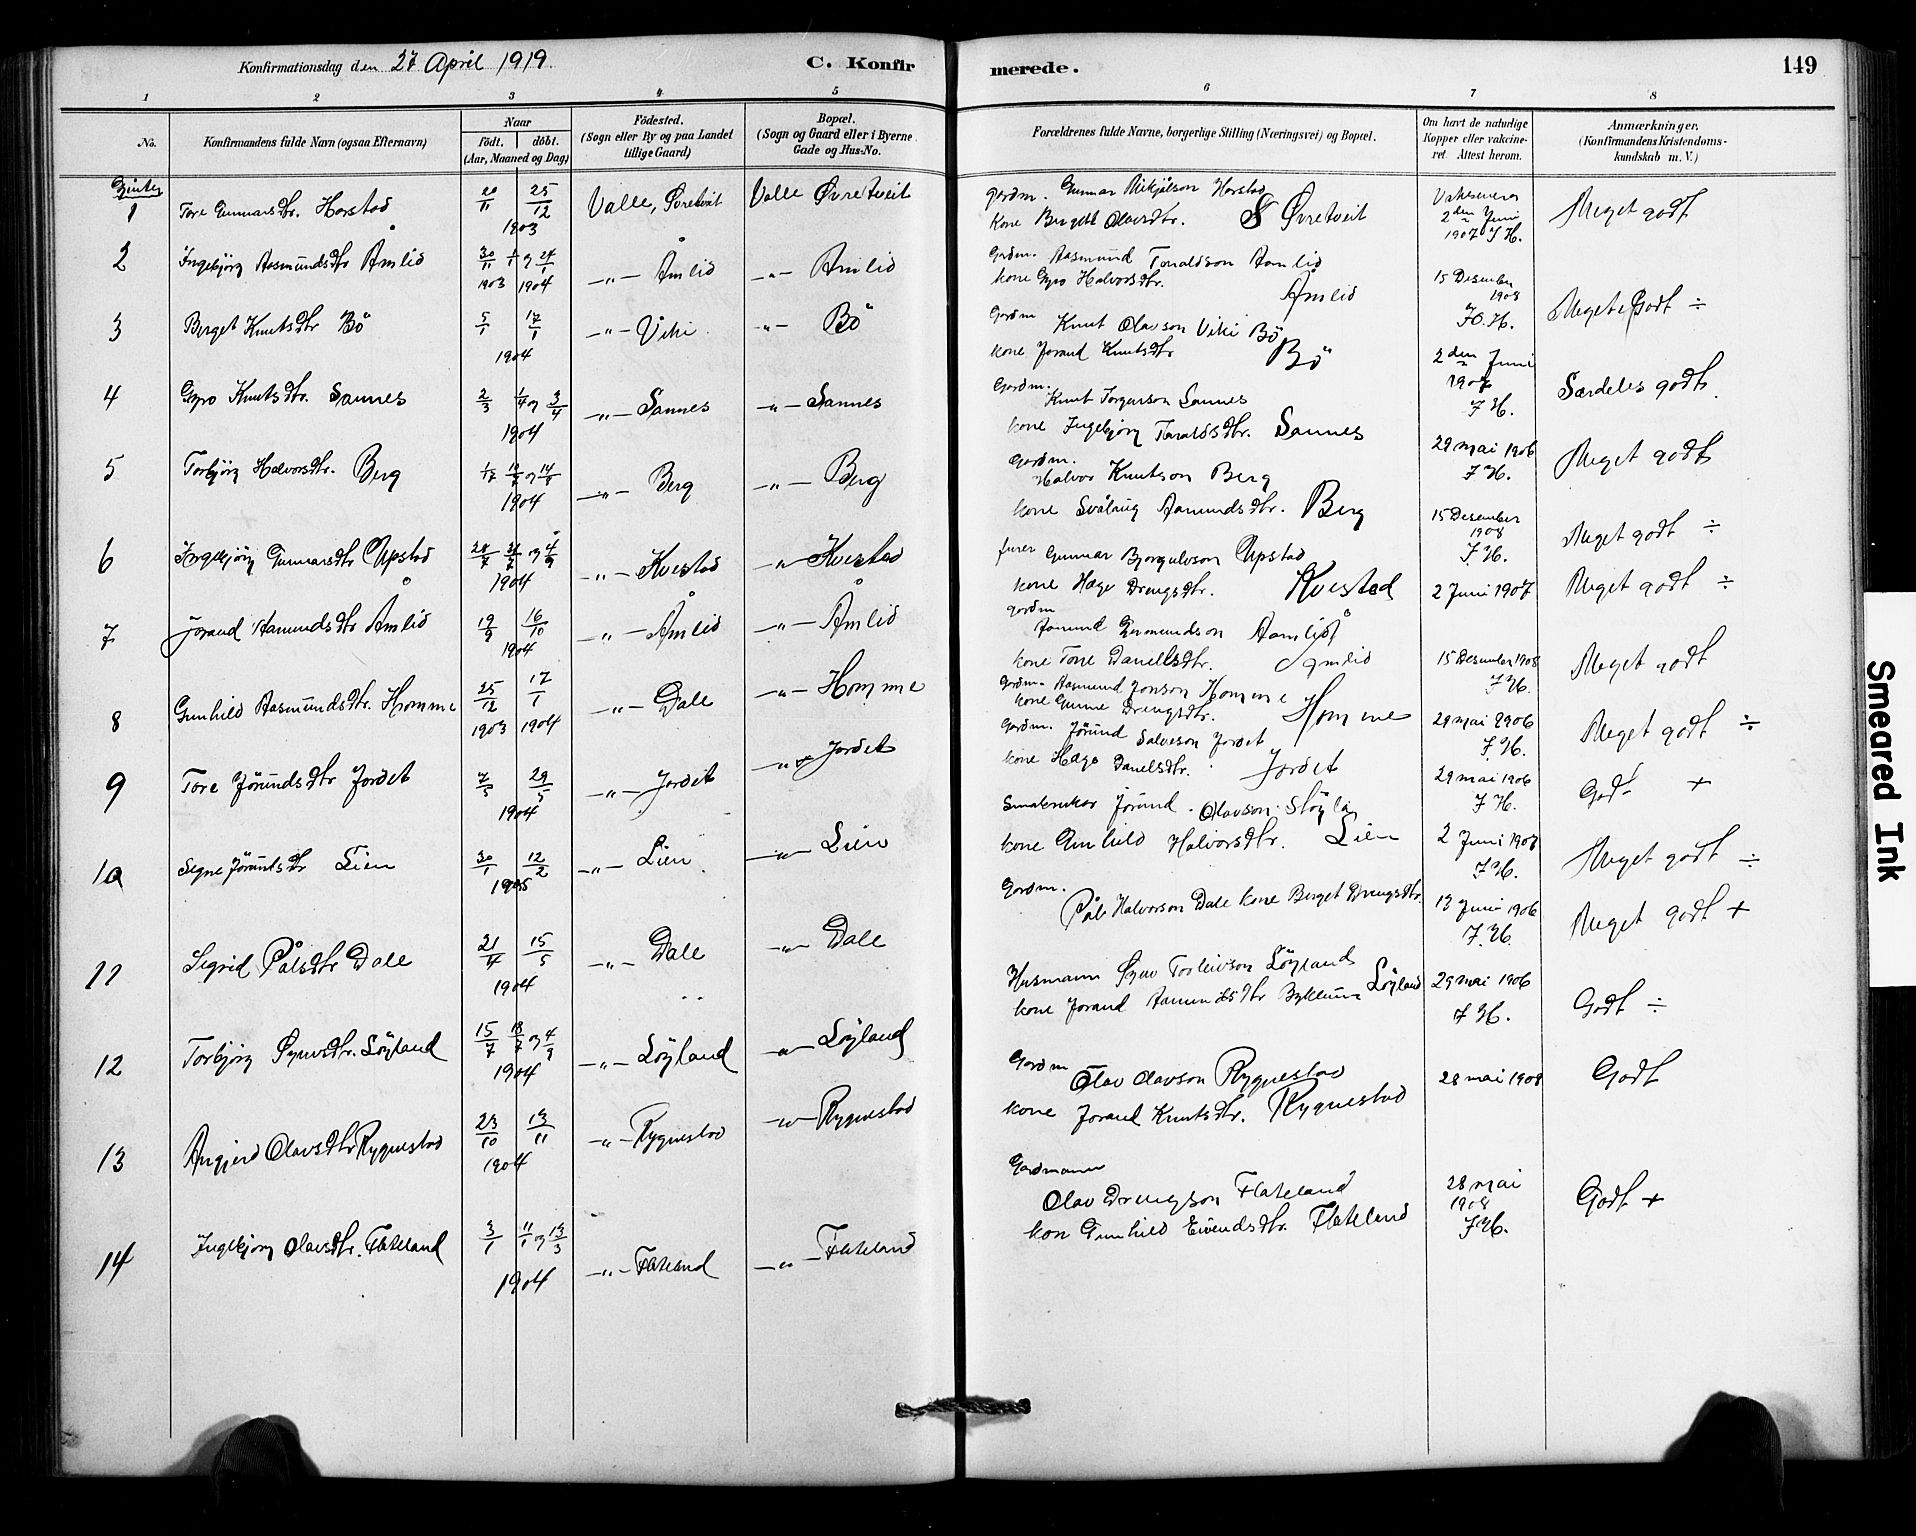 Konfirmationsdag den 27 April 1919.
C. Konfirmerede.
149
1 2 3 4 5 6 7 8
No.
Konfirmandens fulde Navn (ogsaa Efternavn)
Naar
födt. döbt.
(Aar, Maaned og Dag)
Födested.
(Sogn eller By og paa Landet
tillige Gaard)
Bopæl.
(Sogn og Gaard eller i Byerne
Gade og Hus-No.
Forældrenes fulde Navne, borgerlige Stilling (Næringsvei) og Bopæl.
Om havt de naturlige
Kopper eller vakcine-
ret. Attest herom.
Anmærkninger.
(Konfirmandens Kristendoms-
kundskab m. V.)
Gjenter
1 Tore Gunnarsdtr. Harstad 20/11 25/12 1903 Valle, Övretveit Valle Övretveit
Gardm. Gunnar Harstad
kone Bergitt Olavsdtr. Övretveit
2den Juni
1907 J H.
Meget godt
2 Ingebjörg Aasmundsdtr Åmlid 30/11 1903 1/1 og 24/1 1904 -"- Åmlid -"- Åmlid
Gardm. Aasmund Taraldson Aamlid
kone Gyro Halvorsdtr. Åmlid
15 Desember
1908
J.H.
Meget Godt ÷
3 Berget Knutsdtr Bö 5/1 17/1 1904 -"- Viki -"- Bö
Gardm Knut Olavson Viki Bö
kone Jorand Knutsdtr Bö
2den Juni
1907
J H.
Særdeles godt.
4 Gyro Knutsdtr. Sannes 2/3 1/4 og 3/4 1904 -"- Sannes -"- Sannes
Gardm. Knut Torgeirson Sannes
kone Ingebjörg Taraldsdtr. Sannes
29 mai 1906
J H.
Meget godt
5 Torbjörg Halvorsdtr. Berg 1904 -"- Berg -"- Berg
Gardm. Halvor Knutson Berg
kone Svålaug Aamundsdtr. Berg
15 Desember
1908
J. H.
Meget godt ÷
6 Ingebjörg Gunnarsdtr Upstad 1904 -"- Kvestad -"- Kvestad
Gunnar Bjorgulvson Upstad
kone Hæge Drengsdtr. Kvestad
2 Juni 1907
Meget godt ÷
7 Jorand Aamundsdtr Åmlid 19/9 16/10 1904 -"- Åmlid -"- Åmlid
Gardm Aamund Germundson Aamlid
kone Tone Danielsdtr. Aamlid
15 Desember 1908
J H.
Meget godt
8 Gunhild Aasmundsdtr. Homme 25/12 1903 17/1 1904 -"- Dale -"- Homme
Gardm. Aasmund Jonson Homme
kone Gunne Drengsdtr. Homme
29 mai 1906
J. H.
Meget godt ÷
9 Tore Jörundsdtr Jordet 7/5 29/5 1904 -"- Jordet -"- Jordet
Gardm. Jörund Salveson Jordet
kone Hæge Danielsdtr. Jordet
29 mai 1906
J H.
Godt +
10 Signe Jörundsdtr Lien 30/1 12/2 1905 -"- Lien -"- Lien
Smabruker Jörund Olavson
kone Gunhild Halvorsdtr. Lien
2 Juni 1907
J H.
Meget godt ÷
11 Sigrid Pålsdtr Dale 21/4 15/5 1904 -"- Dale -"- Dale
Gardm. Pål Halvorson Dale kone Berget Drengsdtr.
13 Juni 1906
J. H.
Meget godt +
12 Torbjörg Löyland 15/7 18/7 og 4/9 1904 -"- Löyland -"- Löyland
Husmann Torleivson Löyland
kone Jorand Aamundsdtr Löyland
29 mai 1906
J H.
Godt ÷
13 Angjerd Olavsdtr Rygnestad 23/10 13/11 1904 -"- Rygnestad -"- Rygnestad
Gardm Olav Olavson Rygnestad
kone Jorand Knutsdtr. Rygnestad
28 mai 1908
Godt
14 Ingebjörg Olavsdtr. Flateland 3/1 11/1 og 13/3 1904 -"- Flateland -"- Flateland
Gardmann
Olav Drengson Flateland
kon Gunhild Eivendsdtr. Flateland
28 mai
1908
J H.
Godt +
Smeared Ink